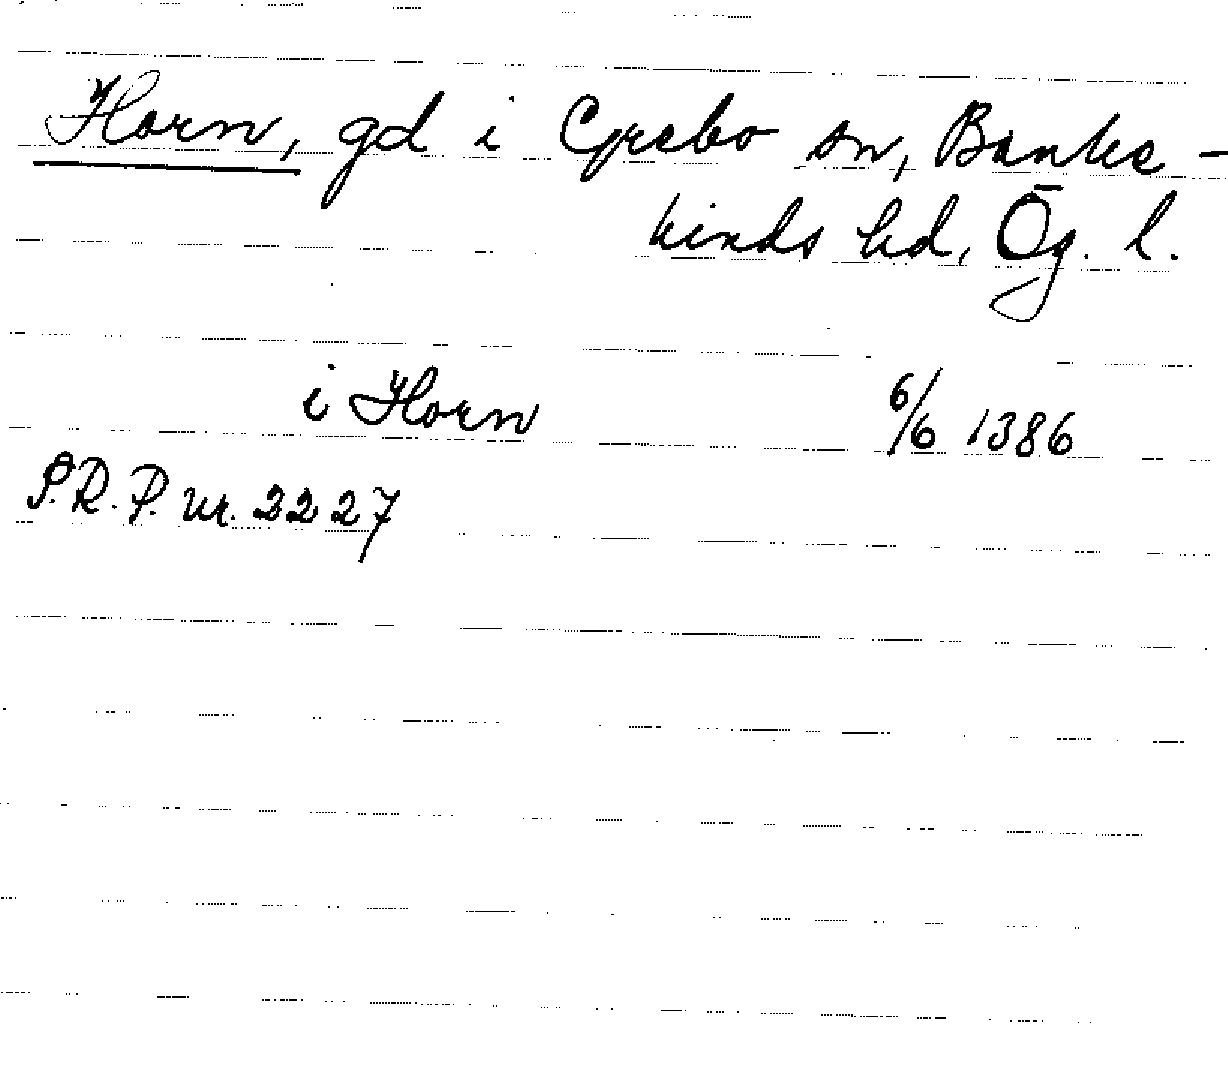 Horn, gd i Grebo sn, Banke-
kinds hd, Ög. l.
i Horn 6/6 1386
S.R.P. nr. 2227